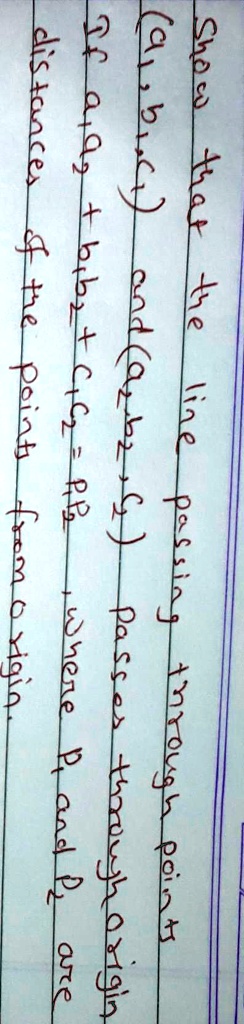 Show that the line passing through points
(a₁, b₁, c₁) and (a₂, b₂, c₂) passes through origin
If a₁a₂ + b₁b₂ + c₁c₂ = P₁P₂, where P₁ and P₂ are
distances of the points from origin.